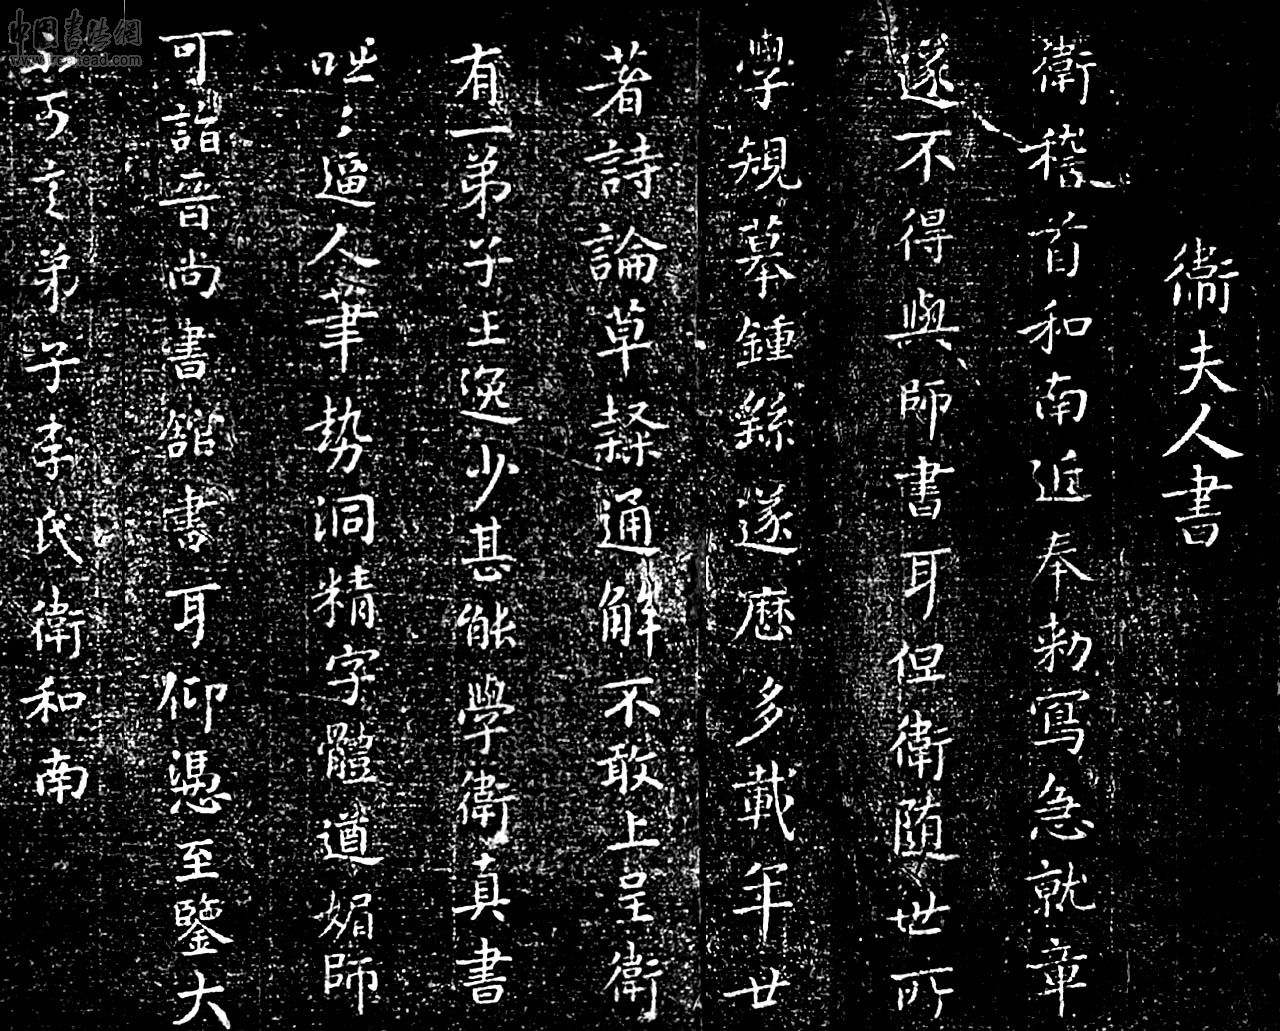 衛夫人書
衛稽首和南近奉勅寫急就章
遂不得與師書耳但衛随世所
學規摹鍾繇遂歷多載年廿
著詩論草隸通解不敢上呈衛
有一弟子王逸少甚能學衛真書
咄〻逼人筆勢洞精字體遒媚師
可詣晉尚書館書耳仰憑至鑒大
不可言弟子李氏衛和南
中国书法网
www.freehead.com